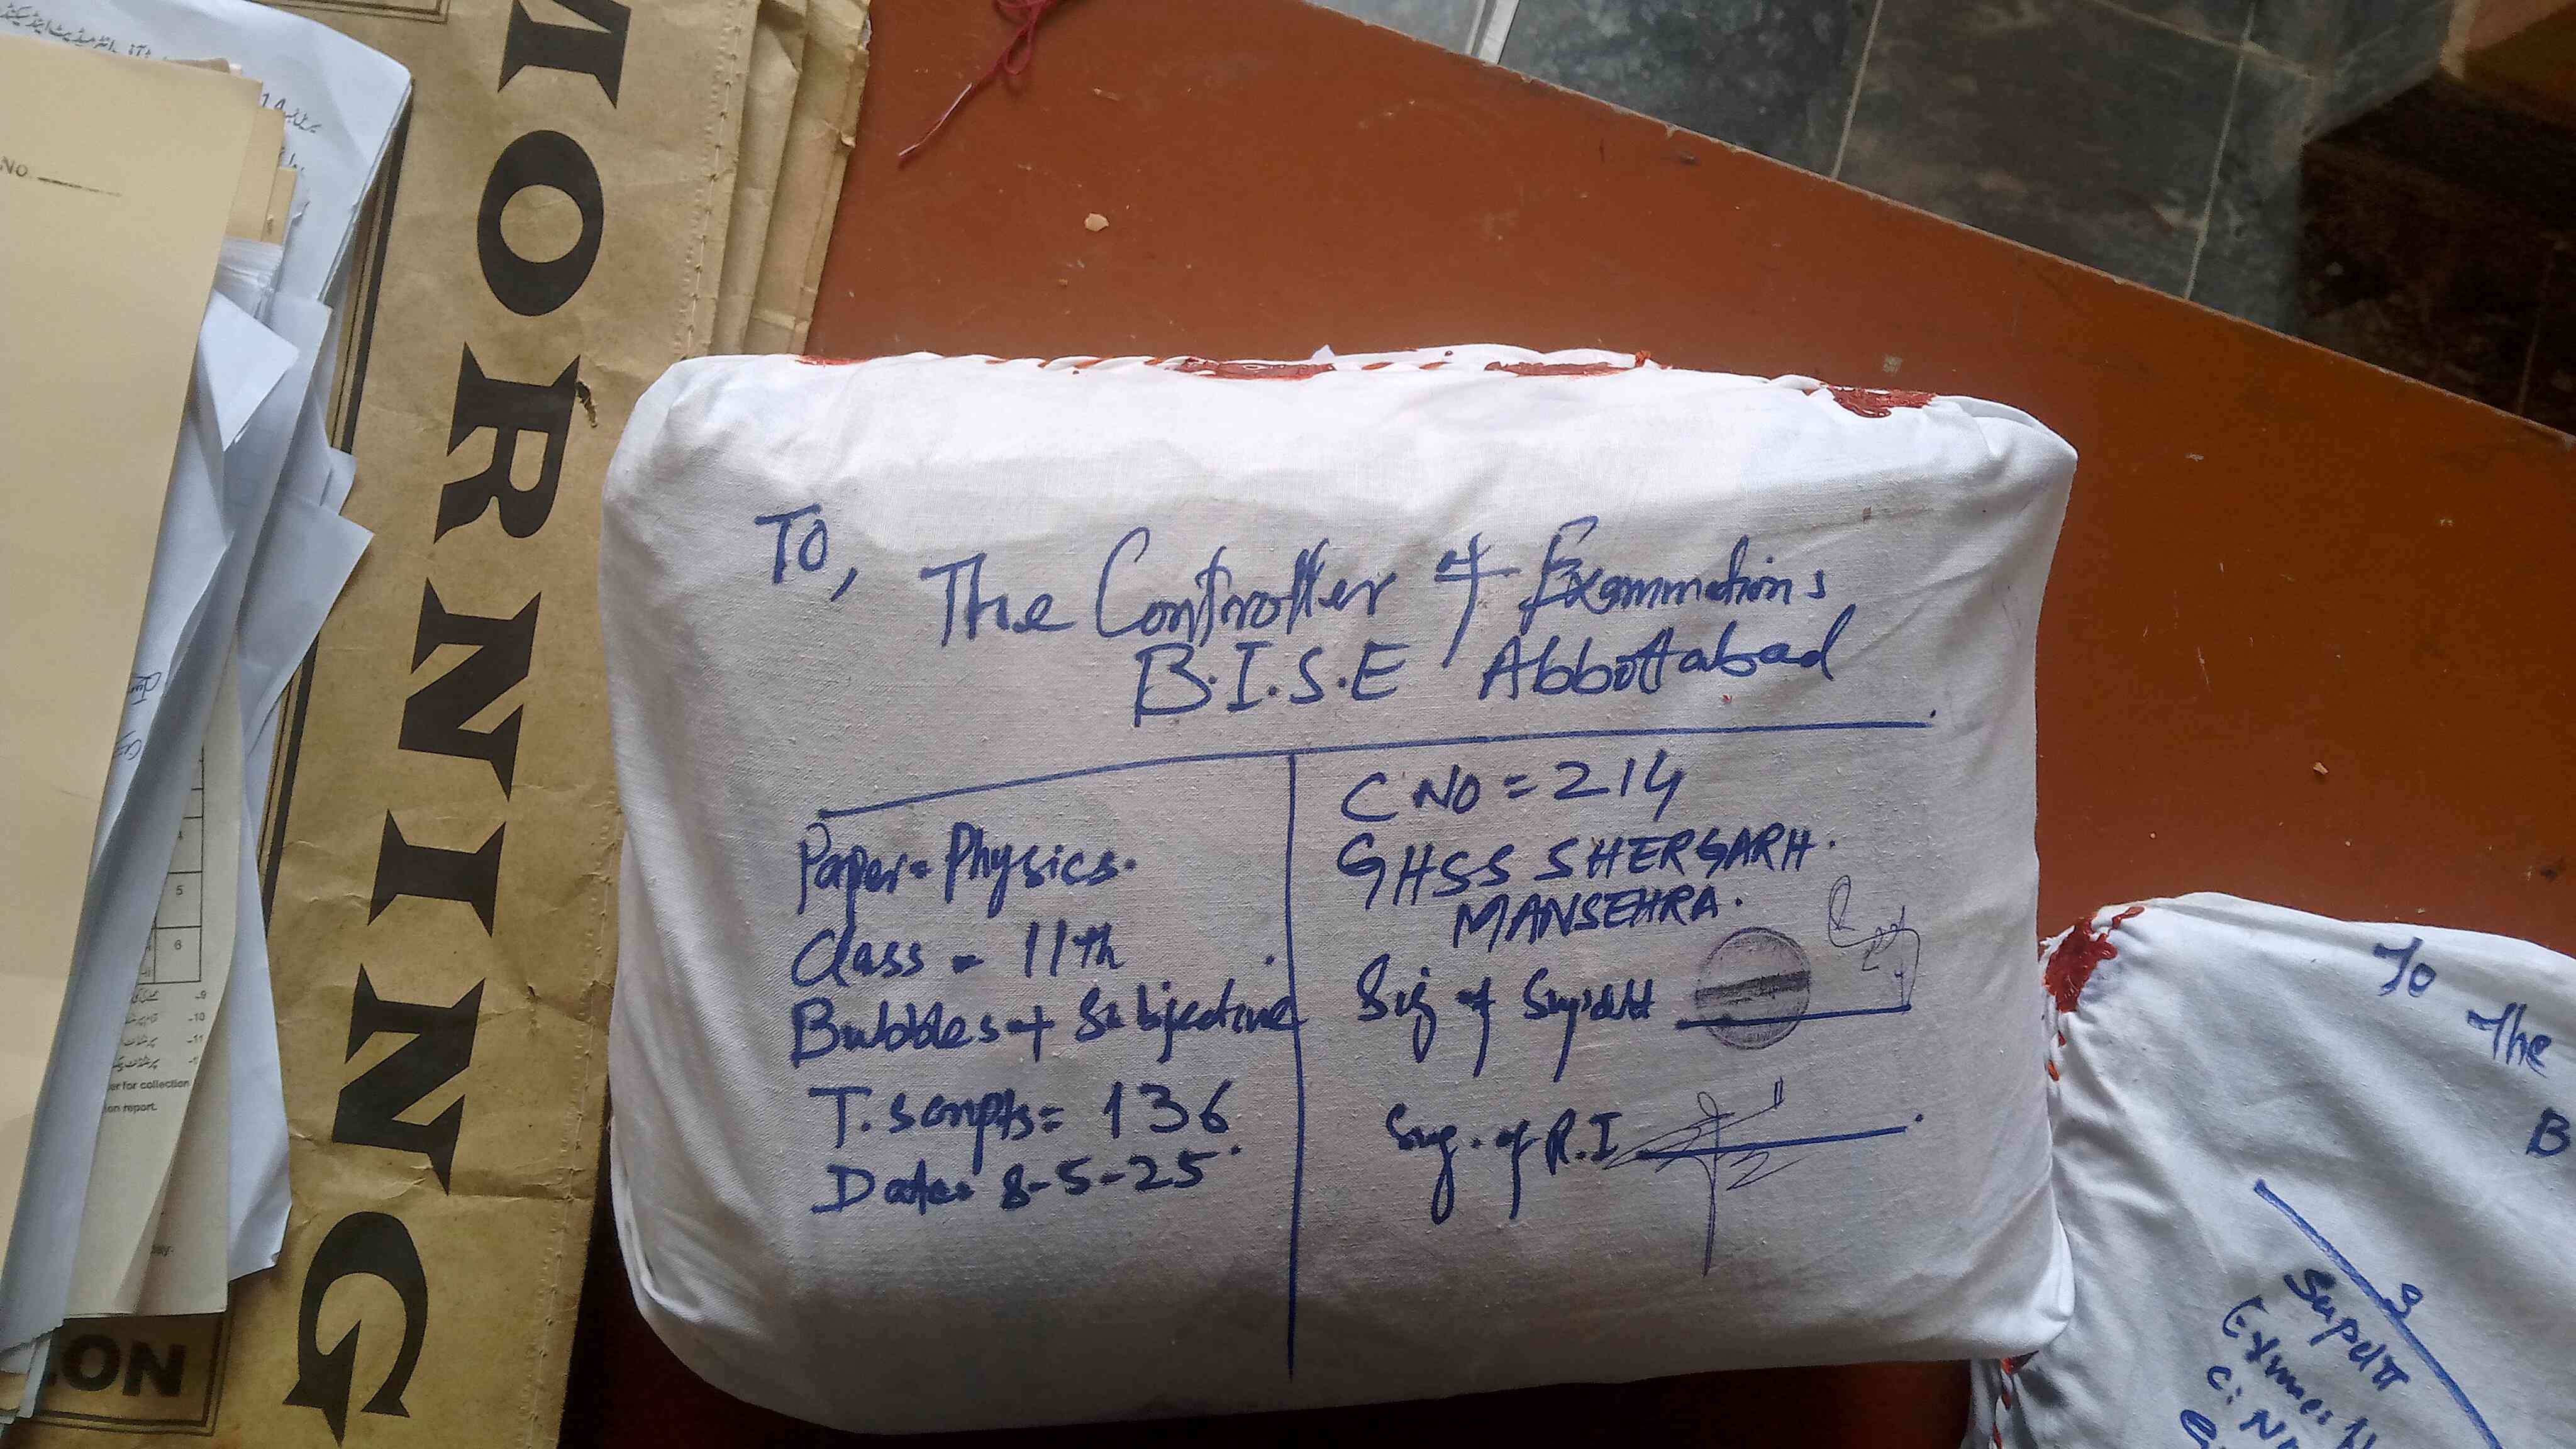 MORNING
NO.
5
6
-9
-10
-11
er for collection
on report.
ON
TO,
The Controller of Exammations
B.I.S.E Abbottabad
Paper = Physics.
Class = 11th
Bubbles + Subjective
T. scripts = 136
Date = 8-5-25
C NO = 214
GHSS SHERGARH.
MANSEHRA.
Sig of Supdtt
Sig. of R.I
To
The
B
Supdtt